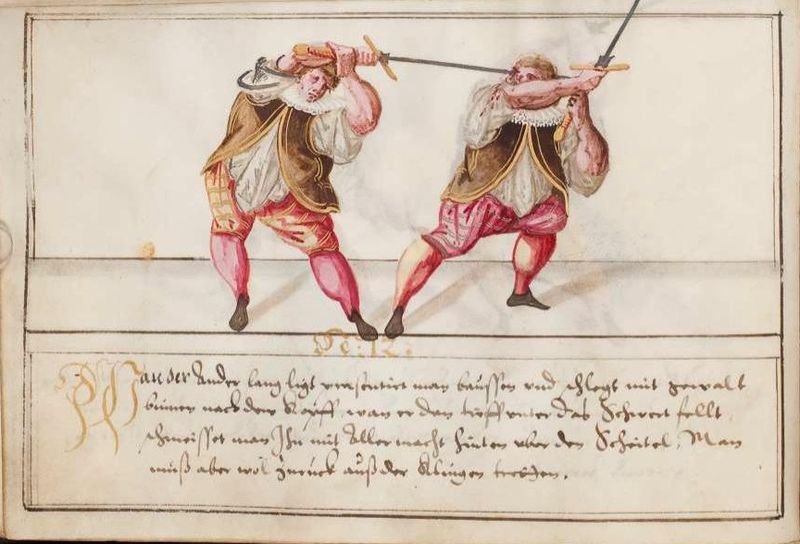 St: 12.
Wan der Ander lang ligt praesentirt man baussen vnd schlegt mit gewalt
binnen nach dem Kopff, wan er dan tieff vnter das Schwert fellt,
schmeisset man Ihn mit Aller macht hinten vber den Scheitel, Man
muß aber wol zurück auß der Klingen tretten.